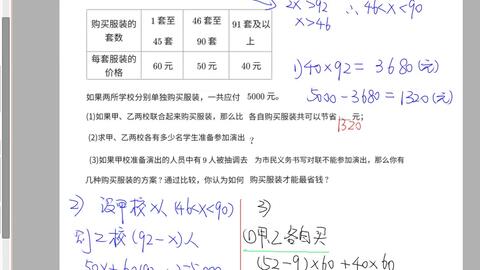 2x>92 ∴ 46<x<90
x>46
购买服装的套数 1套至45套 46套至90套 91套及以上
每套服装的价格 60元 50元 40元
1) 40×92=3680(元)
5000-3680=1320(元)
如果两所学校分别单独购买服装,一共应付 5000元。
(1)如果甲、乙两校联合起来购买服装,那么比 各自购买服装共可以节省 1320 元;
(2)求甲、乙两校各有多少名学生准备参加演出 ?
(3)如果甲校准备演出的人员中有9人被抽调去 为市民义务书写对联不能参加演出,那么你有
几种购买服装的方案?通过比较,你认为如何 购买服装才能最省钱?
2) 设甲校x人(46<x<90)
则乙校(92-x)人
3)
①甲乙各自买
(52-9)×60+40×60